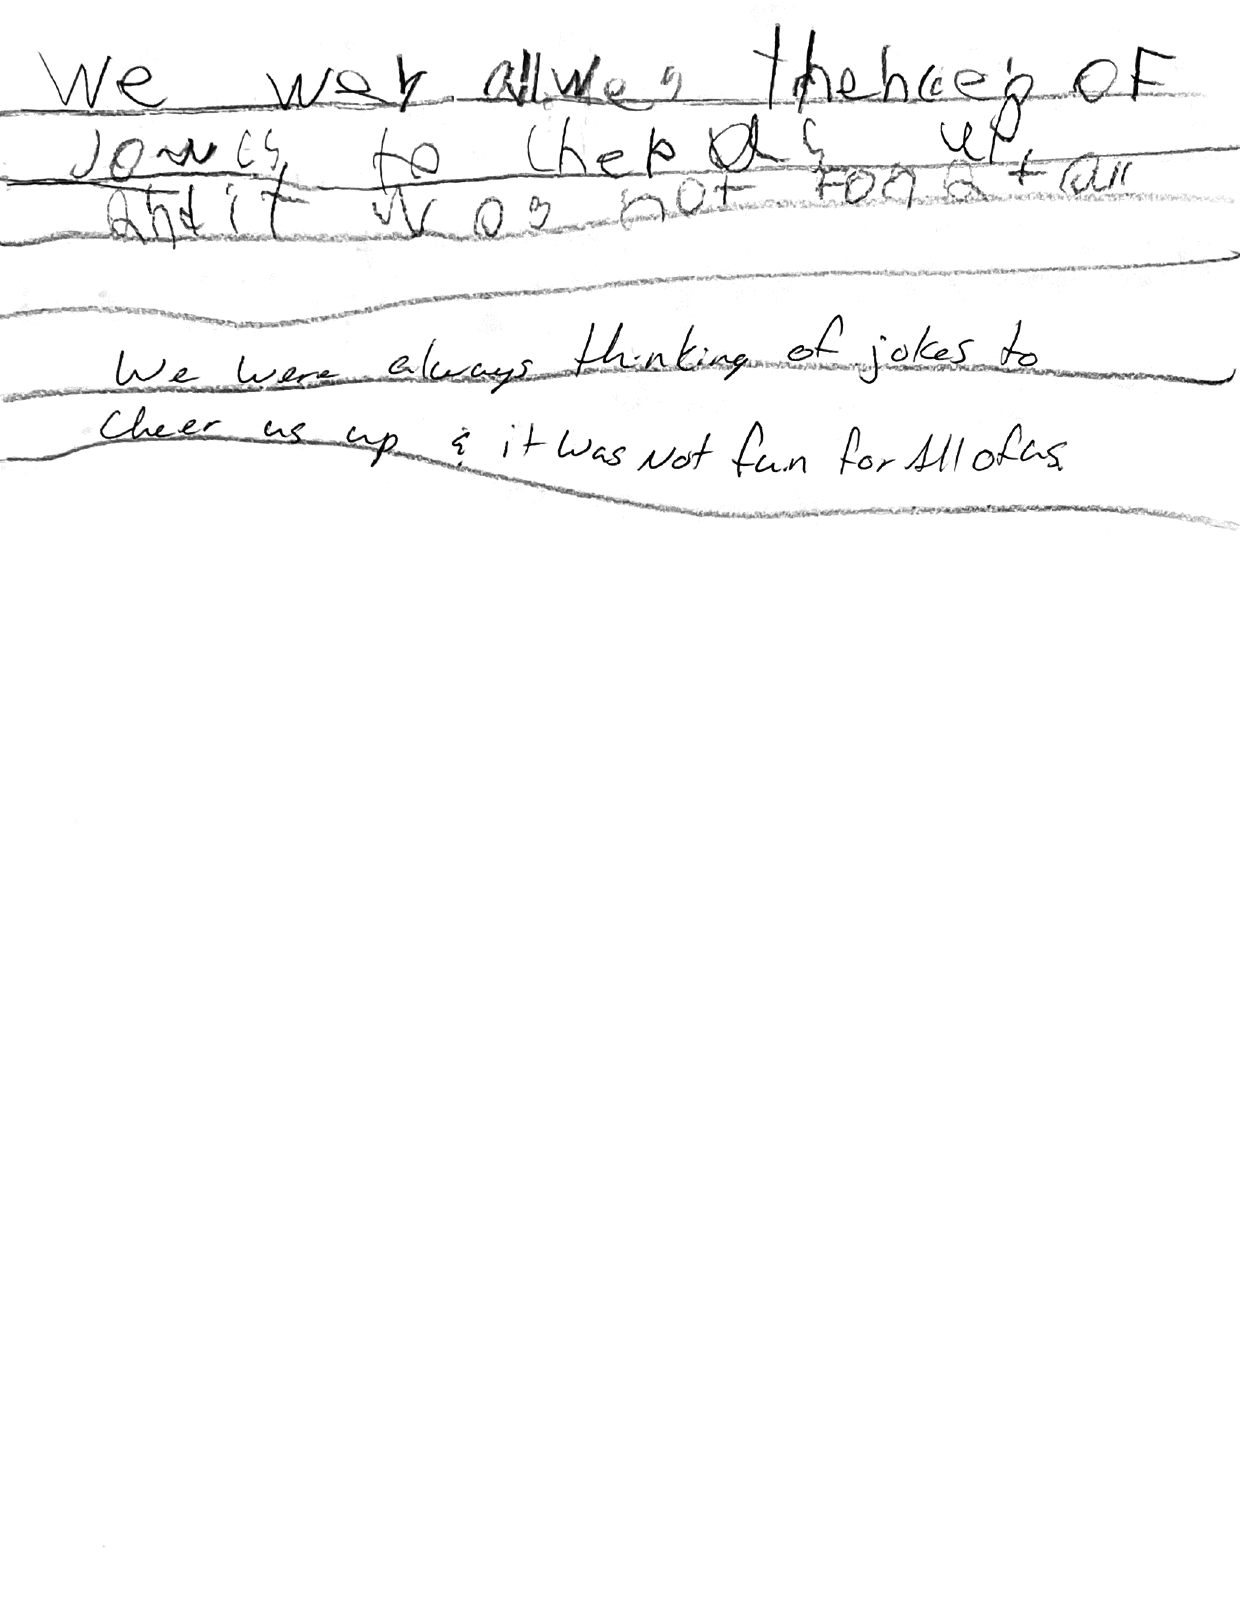 We wer allwes thehceg of
Jowcs to cher us up
and it wos not fon at all
We were always thinking of jokes to
cheer us up & it was not fun for All of us